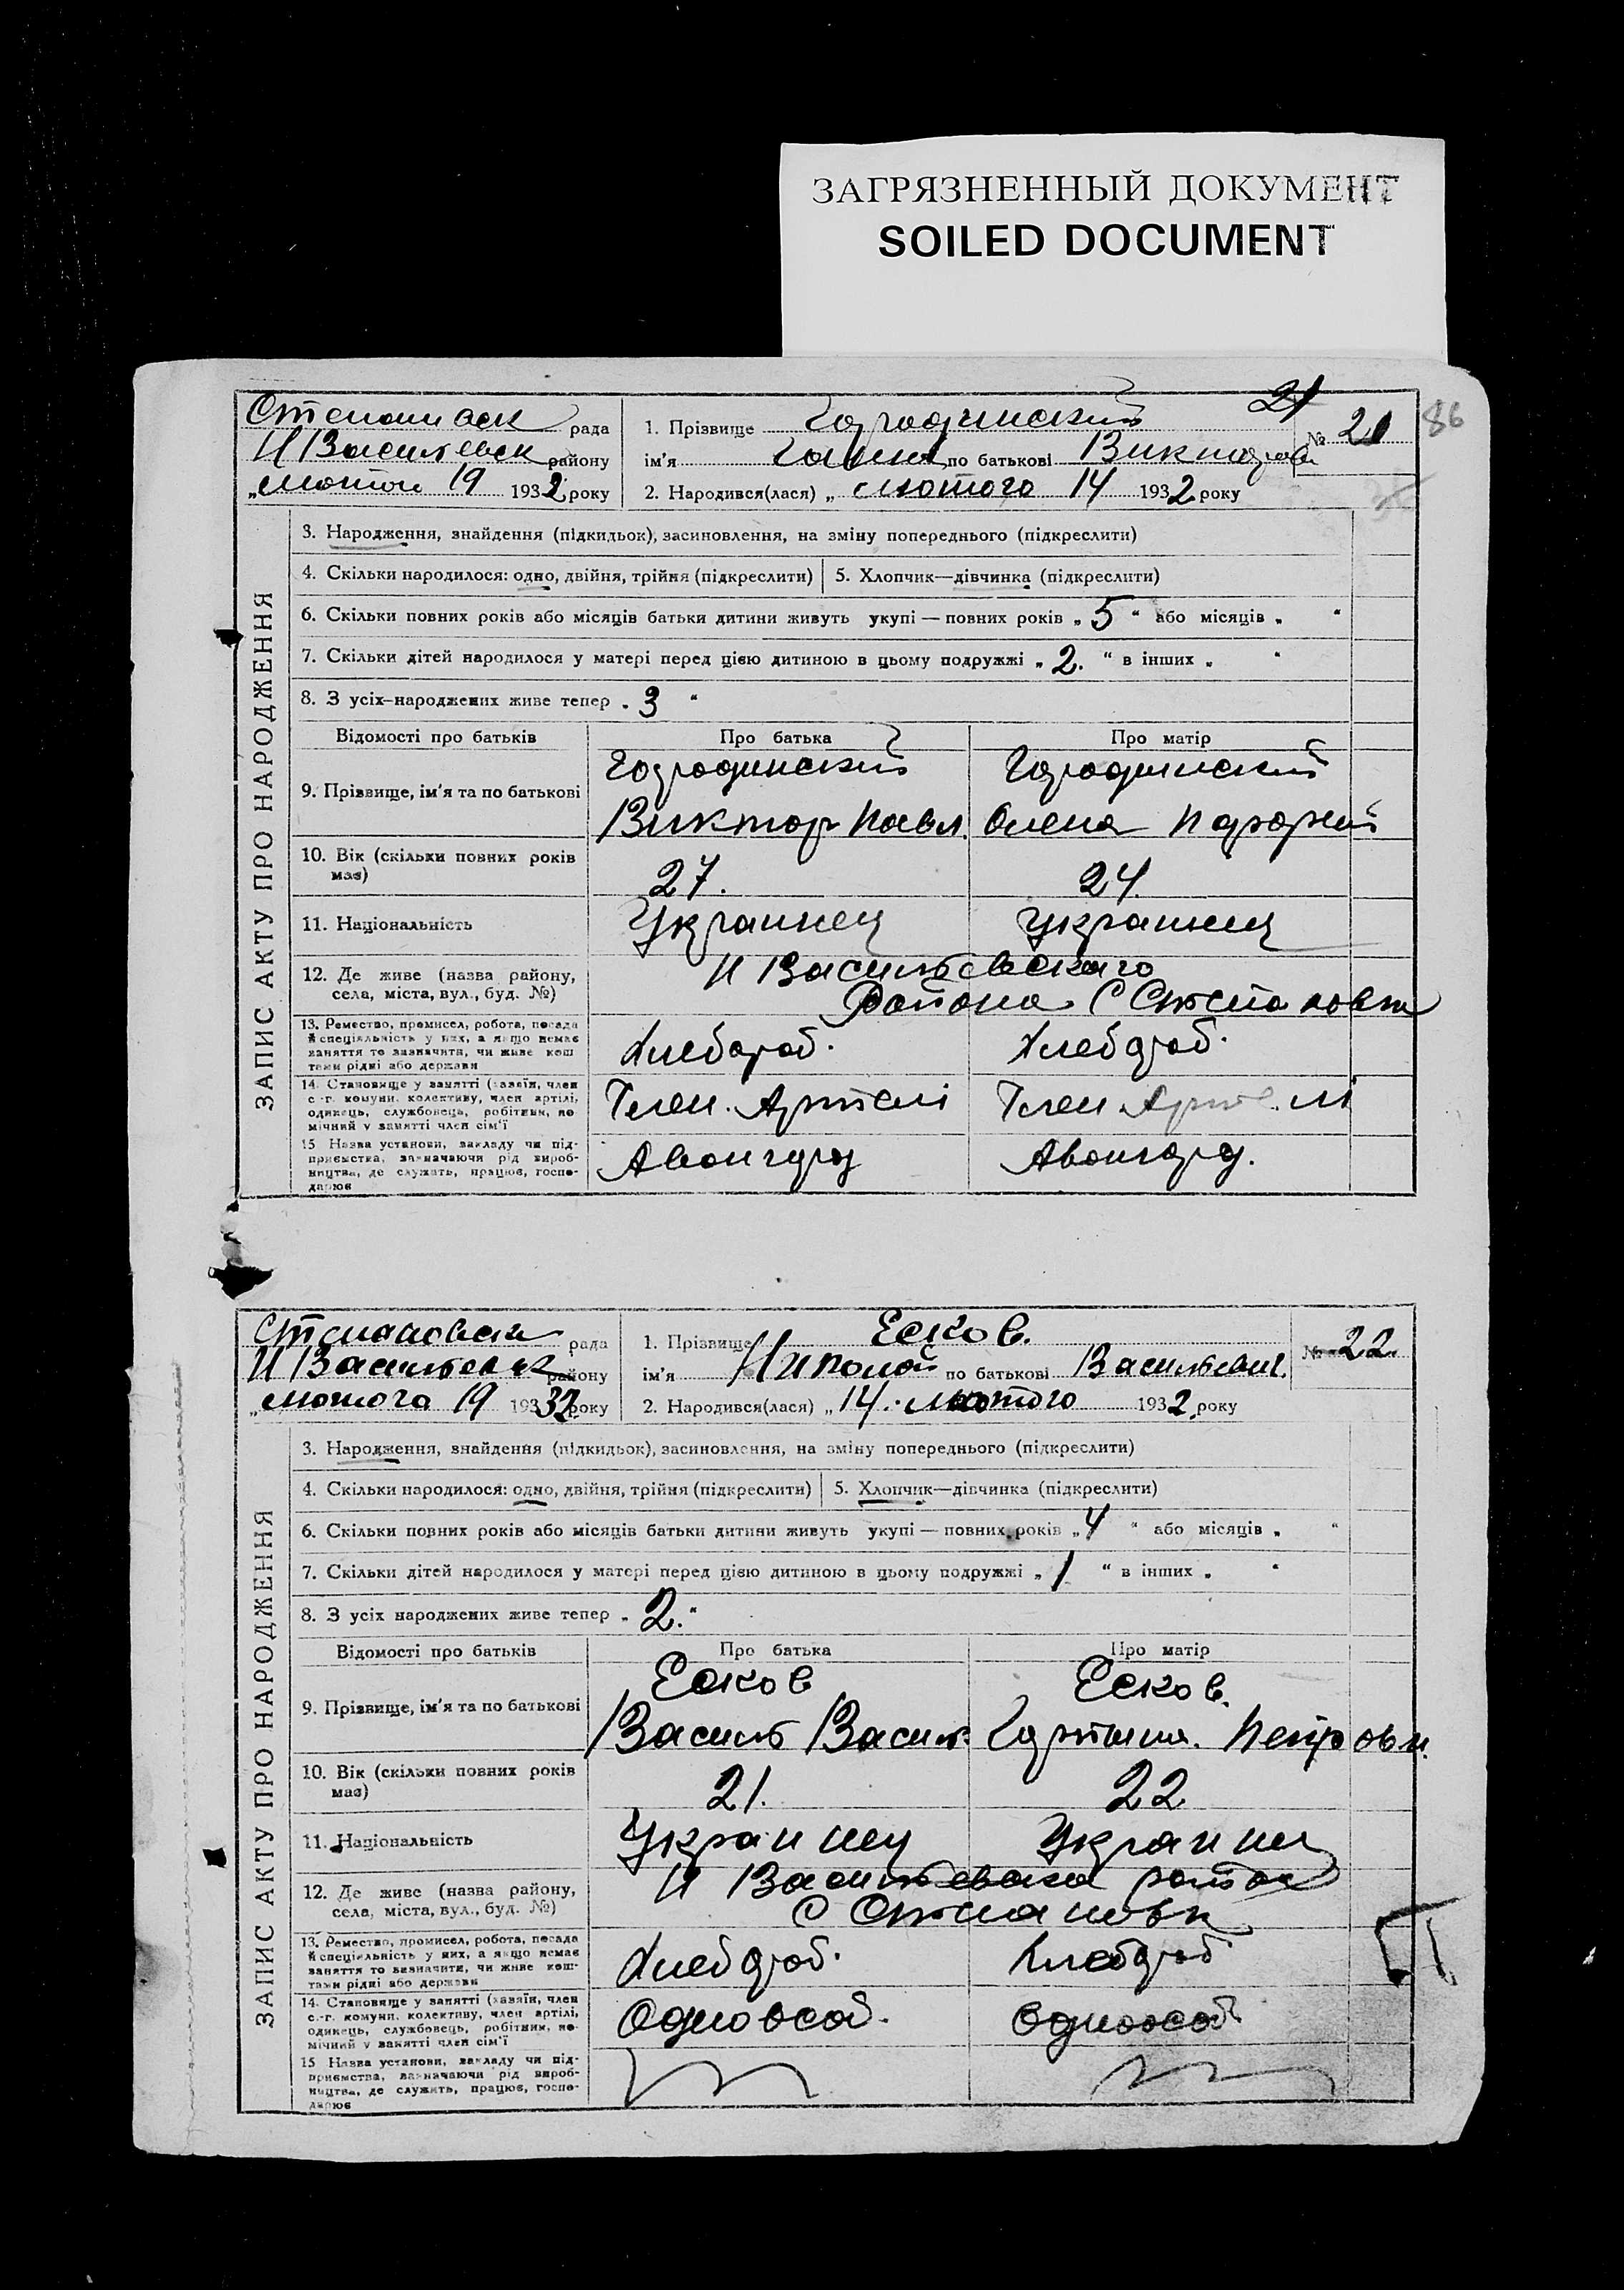 ЗАГРЯЗНЕННЫЙ ДОКУМЕНТ
SOILED DOCUMENT
86
ЗАПИС АКТУ ПРО НАРОДЖЕННЯ
рада
Н Васильевск району
19 1932 року
21
1. Прізвище Городинский
№ 21
ім'я по батькові
2. Народився(лася) „ лютого 14 1932 року
3. Народження, знайдення (підкидьок), засиновлення, на зміну попереднього (підкреслити)
4. Скільки народилося: одно, двійня, трійня (підкреслити) 5. Хлопчик—дівчинка (підкреслити)
6. Скільки повних років або місяців батьки дитини живуть укупі — повних років „ 5 “ або місяців „ “
7. Скільки дітей народилося у матері перед цією дитиною в цьому подружжі „ 2. “ в інших „ “
8. З усіх-народжених живе тепер „ 3 “
Відомості про батьків Про батька Про матір
9. Прізвище, ім'я та по батькові
Городинский Городинский
Виктор Павл. Олена
10. Вік (скільки повних років має)
27. 24
11. Національність Украинец Украинец
12. Де живе (назва району, села, міста, вул., буд. №)
Н Васильевскаго
Района С
13. Ремество, промисел, робота, посада й спеціяльність у них, а якщо немає заняття то зазначити, чи живе коштами рідні або держави
Хлебороб. Хлебороб.
14. Становище у занятті (хазяїн, член с.-г. комуни, колективу, член артілі, одинець, службовець, робітник, помічний у занятті член сім'ї
Член. Артелі Член. Артелі
15 Назва установи, закладу чи підприємства, зазначаючи рід виробництва, де служить, працює, господарює
Авонгорд Авонгорд.
ЗАПИС АКТУ ПРО НАРОДЖЕННЯ
Степановск рада
Н Васильевск району
„лютого 19 1932 року
1. Прізвище Есков.
№ 22
ім'я по батькові Васильевич.
2. Народився(лася) „ 14. лютого 1932 року
3. Народження, знайдення (підкидьок), засиновлення, на зміну попереднього (підкреслити)
4. Скільки народилося: одно, двійня, трійня (підкреслити) 5. Хлопчик—дівчинка (підкреслити)
6. Скільки повних років або місяців батьки дитини живуть укупі — повних років „ 4 “ або місяців „ “
7. Скільки дітей народилося у матері перед цією дитиною в цьому подружжі „ 1 “ в інших „ “
8. З усіх народжених живе тепер „ 2. “
Відомості про батьків Про батька Про матір
9. Прізвище, ім'я та по батькові
Есков Есков.
Василь Васил. Петровн.
10. Вік (скільки повних років має)
21. 22
11. Національність Украинец Украинец
12. Де живе (назва району, села, міста, вул., буд. №)
Н Васильевска район
С Степановк
13. Ремество, промисел, робота, посада й спеціяльність у них, а якщо немає заняття то зазначити, чи живе коштами рідні або держави
Хлебороб. Хлебороб
14. Становище у занятті (хазяїн, член с.-г. комуни, колективу, член артілі, одинець, службовець, робітник, помічний у занятті член сім'ї
15 Назва установи, закладу чи підприємства, зазначаючи рід виробництва, де служить, працює, господарює